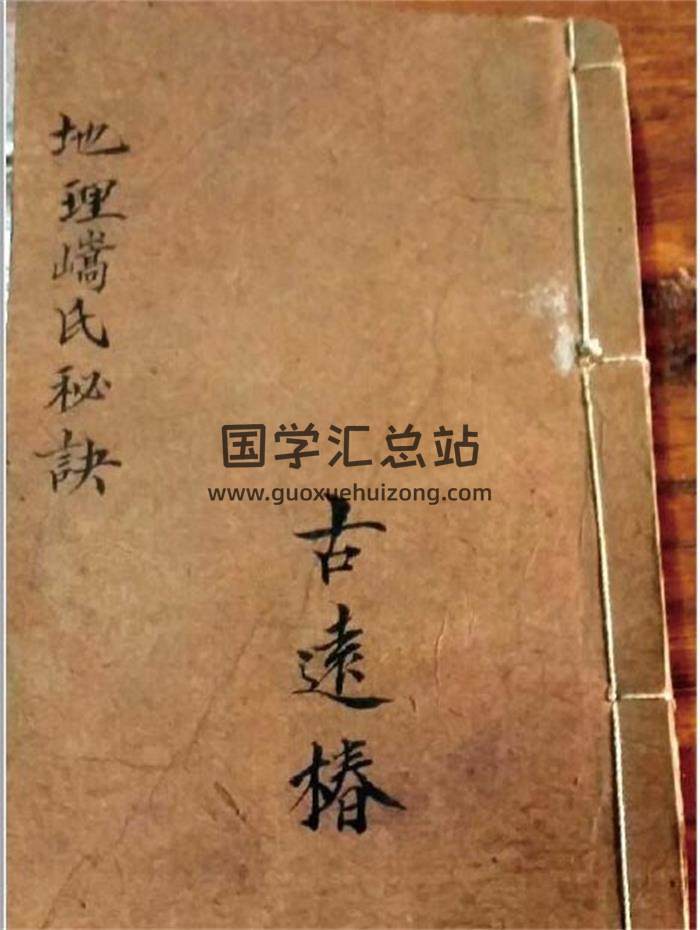 地理嵪氏秘訣
国学汇总站
www.guoxuehuizong.com
古遠椿